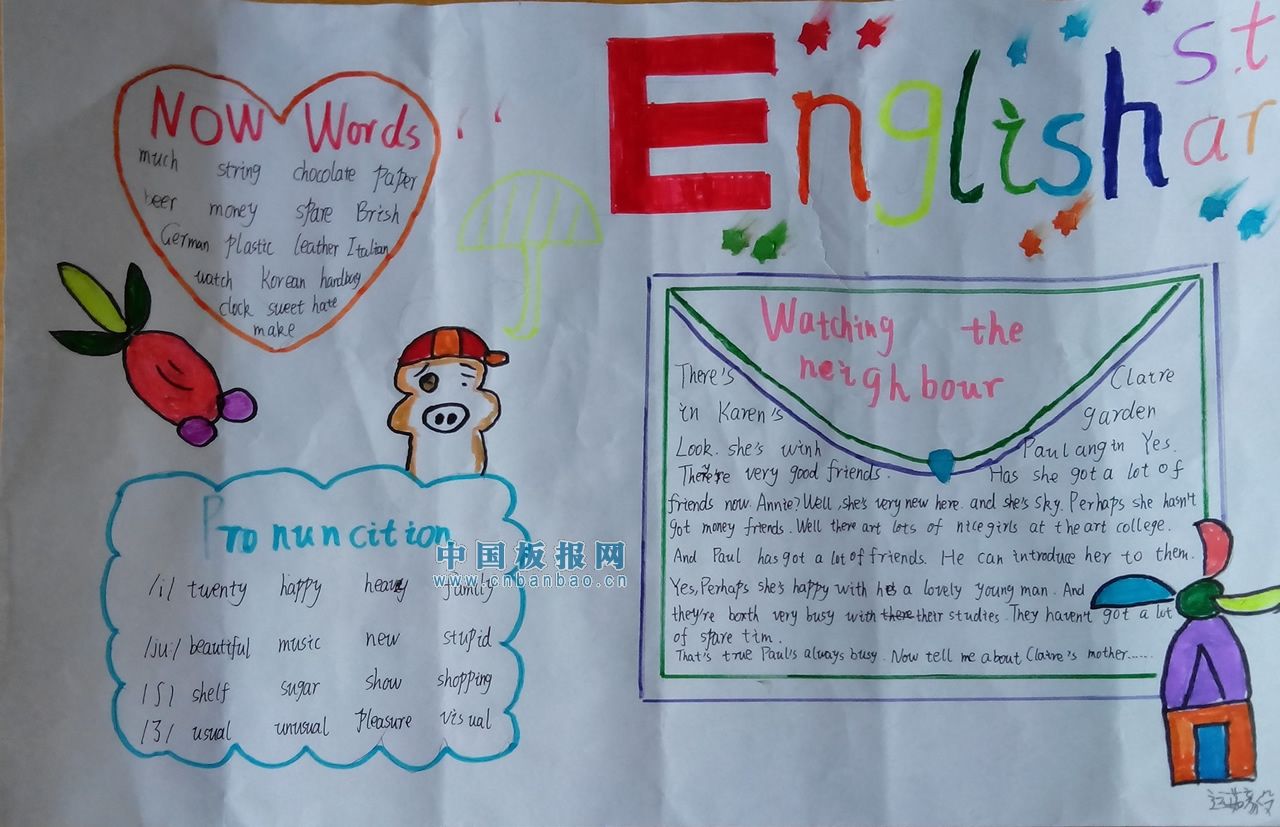 English
st
ar
Now Words
much string chocolate Paper
beer money spare Brish
German Plastic leather Italian
watch Korean handbag
clock sweet hate
make
Watching the
neighbour
There's Claire
in Karen's garden
Look. she's winh Paul angin Yes.
very good friends. Has she got a lot of
friends now. Annie? Well, she's very new here. and she's sky. Perhaps she hasn't
got money friends. Well there art lots of nice girls at the art college.
And Paul has got a lot of friends. He can introduce her to them.
Yes, Perhaps she's happy with a lovely young man. And
they're both very busy with their studies. They haven't got a lot
of spare tim.
That's true Paul's always busy. Now tell me about Claire's mother......
Pronuncition
/i/ twenty happy heavy family
/ju:/ beautiful music new stupid
/ʃ/ shelf sugar show shopping
/ʒ/ usual unusual pleasure visual
中国板报网
www.cnbanbao.cn